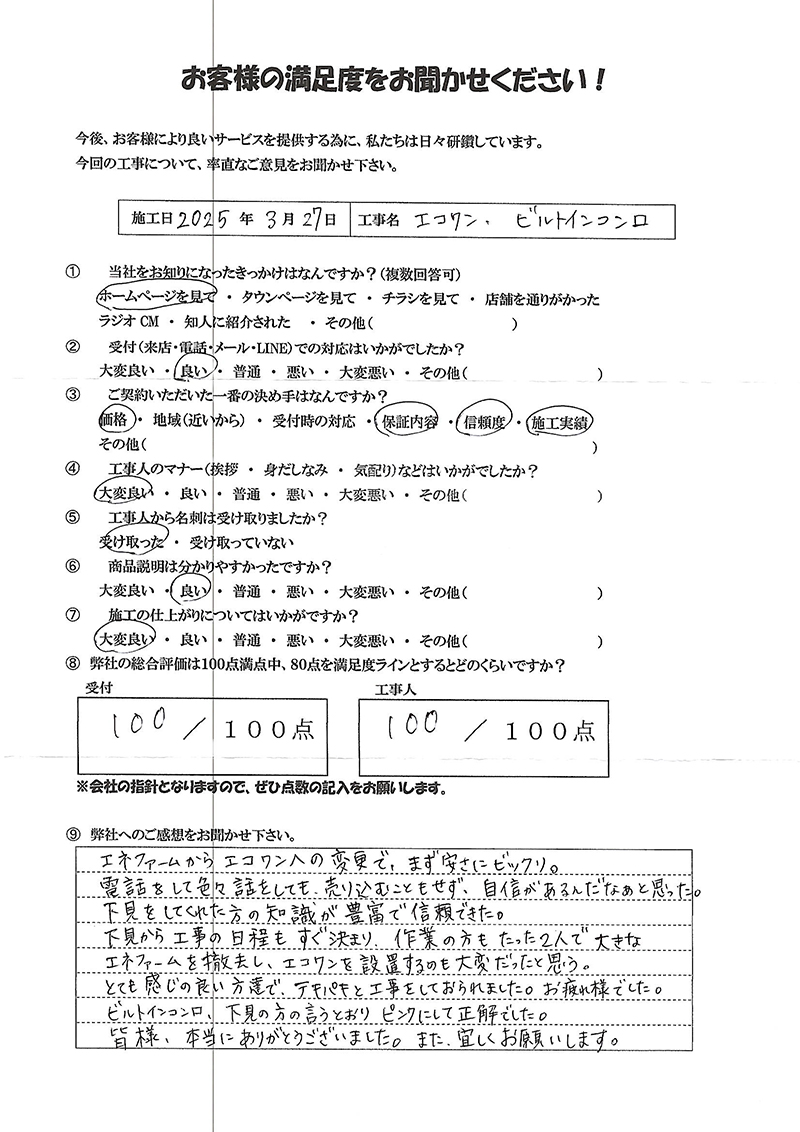 お客様の満足度をお聞かせください！
今後、お客様により良いサービスを提供する為に、私たちは日々研鑽しています。
今回の工事について、率直なご意見をお聞かせ下さい。
施工日 2025 年 3 月 27 日 工事名 エコワン、ビルトインコンロ
① 当社をお知りになったきっかけはなんですか？（複数回答可）
ホームページを見て ・ タウンページを見て ・ チラシを見て ・ 店舗を通りがかった
ラジオCM ・ 知人に紹介された ・ その他（ ）
② 受付（来店・電話・メール・LINE）での対応はいかがでしたか？
大変良い ・ 良い ・ 普通 ・ 悪い ・ 大変悪い ・ その他（ ）
③ ご契約いただいた一番の決め手はなんですか？
価格 ・ 地域（近いから） ・ 受付時の対応 ・ 保証内容 ・ 信頼度 ・ 施工実績
その他（ ）
④ 工事人のマナー（挨拶 ・ 身だしなみ ・ 気配り）などはいかがでしたか？
大変良い ・ 良い ・ 普通 ・ 悪い ・ 大変悪い ・ その他（ ）
⑤ 工事人から名刺は受け取りましたか？
受け取った ・ 受け取っていない
⑥ 商品説明は分かりやすかったですか？
大変良い ・ 良い ・ 普通 ・ 悪い ・ 大変悪い ・ その他（ ）
⑦ 施工の仕上がりについてはいかがですか？
大変良い ・ 良い ・ 普通 ・ 悪い ・ 大変悪い ・ その他（ ）
⑧ 弊社の総合評価は100点満点中、80点を満足度ラインとするとどのくらいですか？
受付 工事人
100 ／ 100点 100 ／ 100点
※会社の指針となりますので、ぜひ点数の記入をお願いします。
⑨ 弊社へのご感想をお聞かせ下さい。
エネファームからエコワンへの変更で、まず安さにビックリ。
電話をして色々話をしても、売り込むこともせず、自信があるんだなぁと思った。
下見をしてくれた方の知識が豊富で信頼できた。
下見から工事の日程もすぐ決まり、作業の方もたった2人で大きな
エネファームを撤去し、エコワンを設置するのも大変だったと思う。
とても感じの良い方達で、テキパキと工事をしておられました。お疲れ様でした。
ビルトインコンロ、下見の方の言うとおりピンクにして正解でした。
皆様、本当にありがとうございました。また、宜しくお願いします。